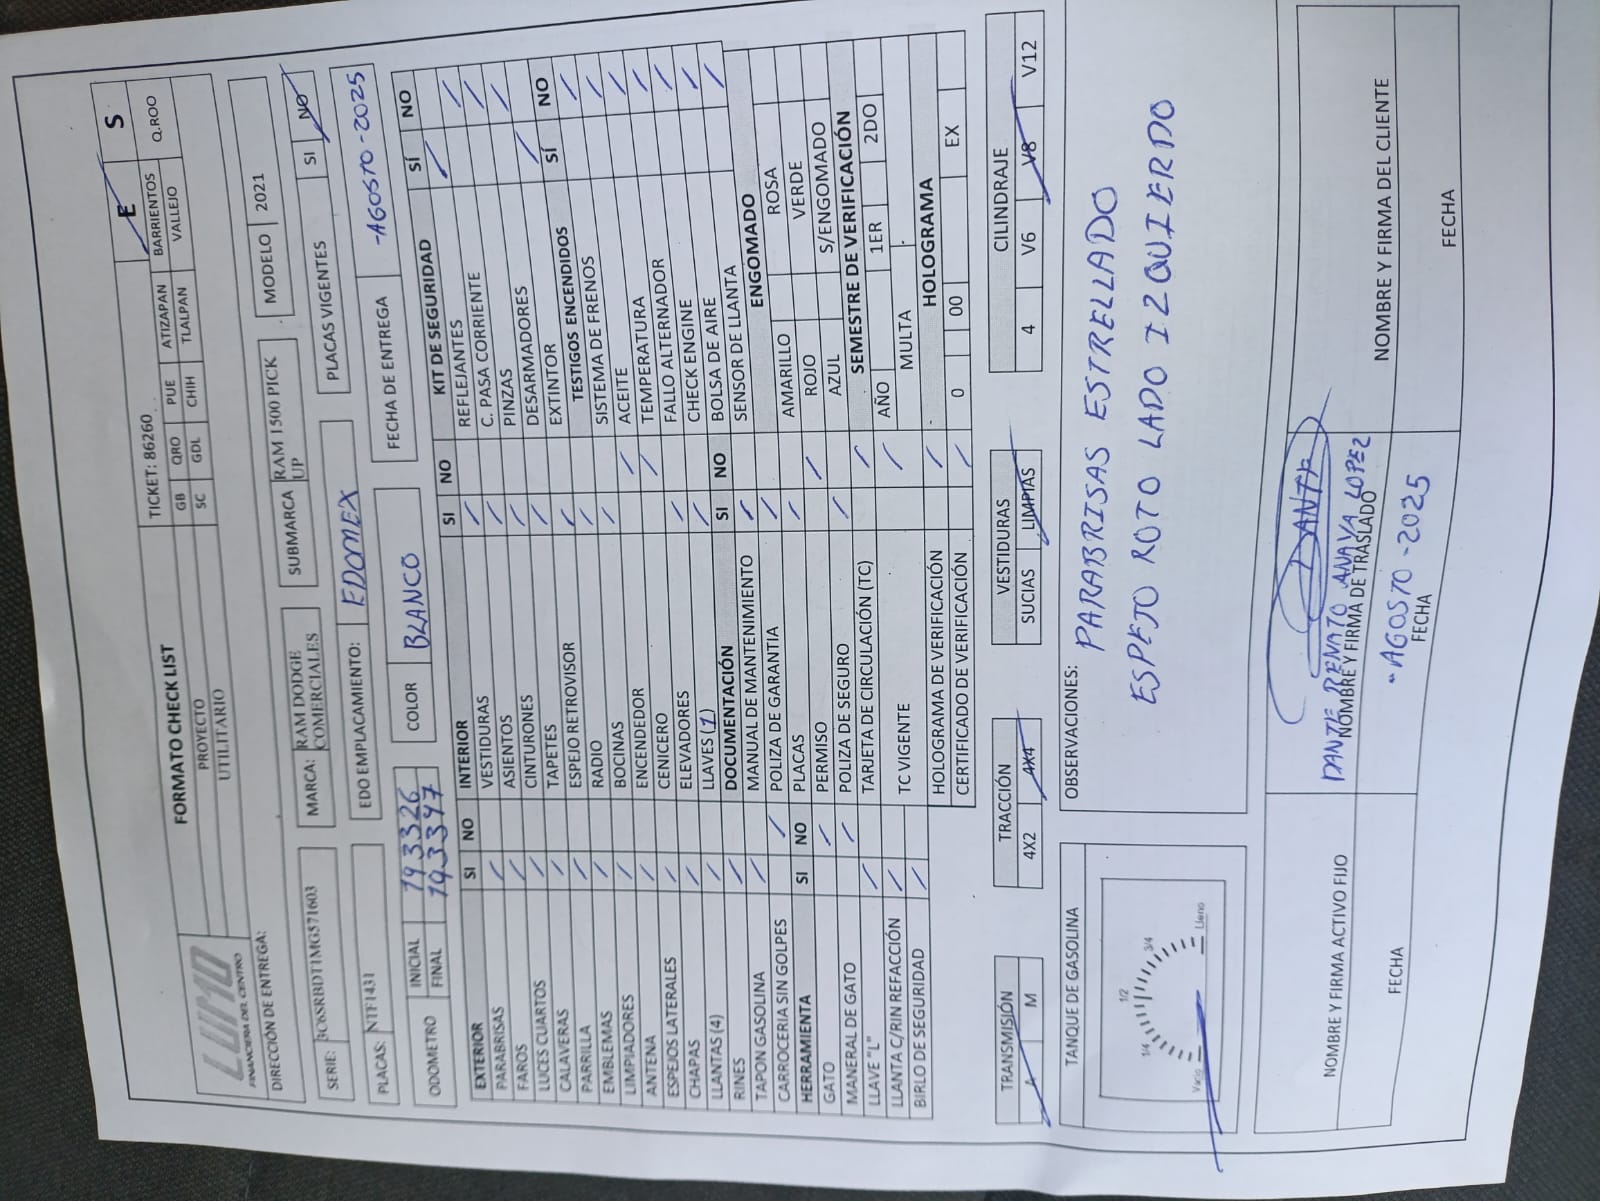 E S
FORMATO CHECK LIST TICKET: 86260
LUMO
FINANCIERA DEL CENTRO
PROYECTO GB QRO PUE ATIZAPAN BARRIENTOS Q.ROO
UTILITARIO SC GDL CHIH TLALPAN VALLEJO
DIRECCIÓN DE ENTREGA:
SERIE: 3C6SRBDT1MG571603 MARCA: RAM DODGE COMERCIALES SUBMARCA RAM 1500 PICK UP MODELO 2021
PLACAS: NTF1431 EDO EMPLACAMIENTO: EDOMEX PLACAS VIGENTES SI NO
ODOMETRO INICIAL 193326 COLOR BLANCO FECHA DE ENTREGA -AGOSTO-2025
FINAL 193347
EXTERIOR SI NO
PARABRISAS /
FAROS /
LUCES CUARTOS /
CALAVERAS /
PARRILLA /
EMBLEMAS /
LIMPIADORES /
ANTENA /
ESPEJOS LATERALES /
CHAPAS /
LLANTAS (4) /
RINES /
TAPON GASOLINA /
CARROCERIA SIN GOLPES /
HERRAMIENTA SI NO
GATO /
MANERAL DE GATO /
LLAVE "L" /
LLANTA C/RIN REFACCIÓN /
BIRLO DE SEGURIDAD /
INTERIOR SI NO
VESTIDURAS /
ASIENTOS /
CINTURONES /
TAPETES /
ESPEJO RETROVISOR /
RADIO /
BOCINAS /
ENCENDEDOR /
CENICERO /
ELEVADORES /
LLAVES (1) /
DOCUMENTACIÓN SI NO
MANUAL DE MANTENIMIENTO /
POLIZA DE GARANTIA /
PLACAS /
PERMISO /
POLIZA DE SEGURO /
TARJETA DE CIRCULACIÓN (TC) /
TC VIGENTE /
HOLOGRAMA DE VERIFICACIÓN /
CERTIFICADO DE VERIFICACIÓN /
KIT DE SEGURIDAD SÍ NO
REFLEJANTES /
C. PASA CORRIENTE /
PINZAS /
DESARMADORES /
EXTINTOR /
TESTIGOS ENCENDIDOS SÍ NO
SISTEMA DE FRENOS /
ACEITE /
TEMPERATURA /
FALLO ALTERNADOR /
CHECK ENGINE /
BOLSA DE AIRE /
SENSOR DE LLANTA /
ENGOMADO
AMARILLO ROSA
ROJO VERDE
AZUL S/ENGOMADO
SEMESTRE DE VERIFICACIÓN
AÑO 1ER 2DO
MULTA
HOLOGRAMA
0 00 EX
TRANSMISIÓN TRACCIÓN VESTIDURAS CILINDRAJE
A M 4X2 4X4 SUCIAS LIMPIAS 4 V6 V8 V12
TANQUE DE GASOLINA
Vacio 1/4 1/2 3/4 Lleno
OBSERVACIONES:
PARABRISAS ESTRELLADO
ESPEJO ROTO LADO IZQUIERDO
DANTE
DANTE RENATO ANAYA LOPEZ
NOMBRE Y FIRMA ACTIVO FIJO NOMBRE Y FIRMA DE TRASLADO NOMBRE Y FIRMA DEL CLIENTE
"AGOSTO-2025
FECHA FECHA FECHA